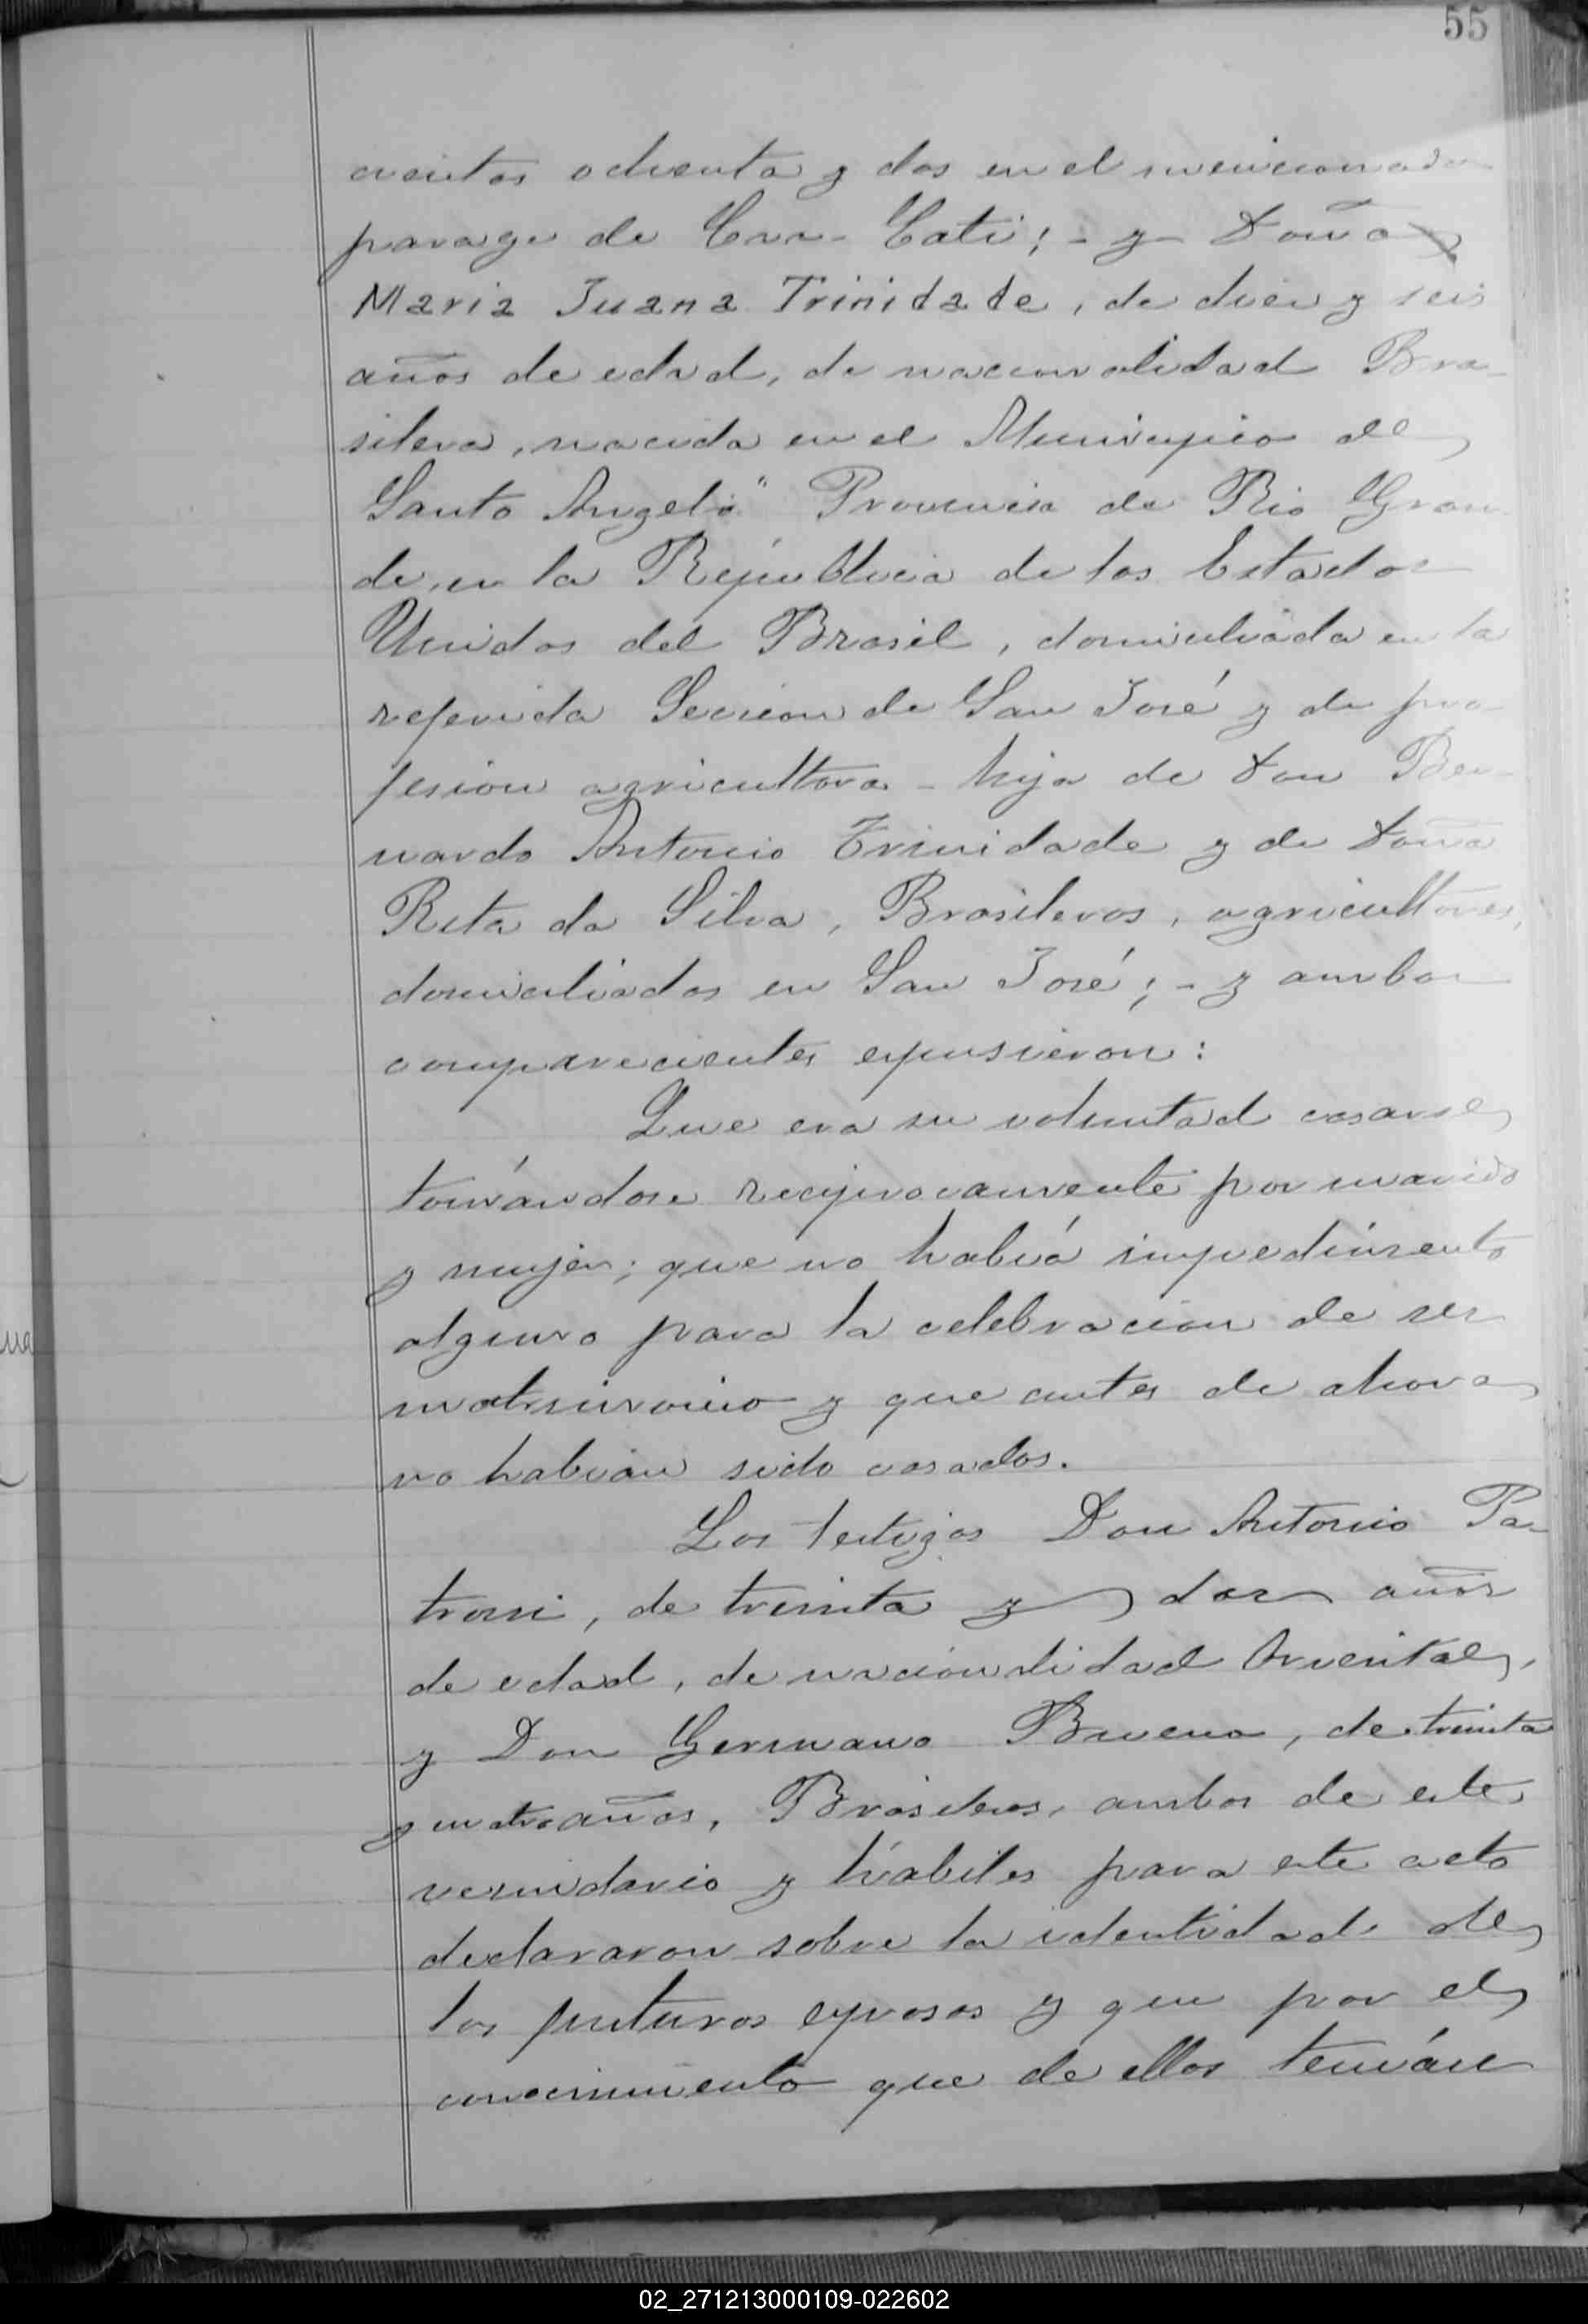 55
cientos ochenta y dos en el mencionado
parage de Caa-Cati; - y Doña
Maria Juana Trinidade, de diez y seis
años de edad, de nacionalidad Bra-
silera, nacida en el Municipio de
Santo Angelo" Provincia de Rio Gran
de, en la República de los Estados
Unidos del Brasil, domiciliada en la
referida Seccion de San José y de pro-
fesion agricultora - hija de Don Ber-
nardo Antonio Trinidade y de Doña
Rita da Silva, Brasileros, agricultores,
domiciliados en San José; - y ambos
comparecientes expusieron:
Que era su voluntad casarse
tomándose reciprocamente por marido
y mujer; que no habiá impedimento
alguno para la celebracion de
matrimonio y que antes de ahora
no habian sido casados.
Los testigos Don Antonio Pa-
troni, de treinta y dos años
de edad, de nacionalidad Oriental,
y Don Germano Bueno, de treinta
y cuatro años, Brasileros, ambos de este
vecindario y hábiles para este acto
declararon sobre la identidad de
los futuros esposos y que por el
conocimiento que de ellos tenián
02_271213000109-022602